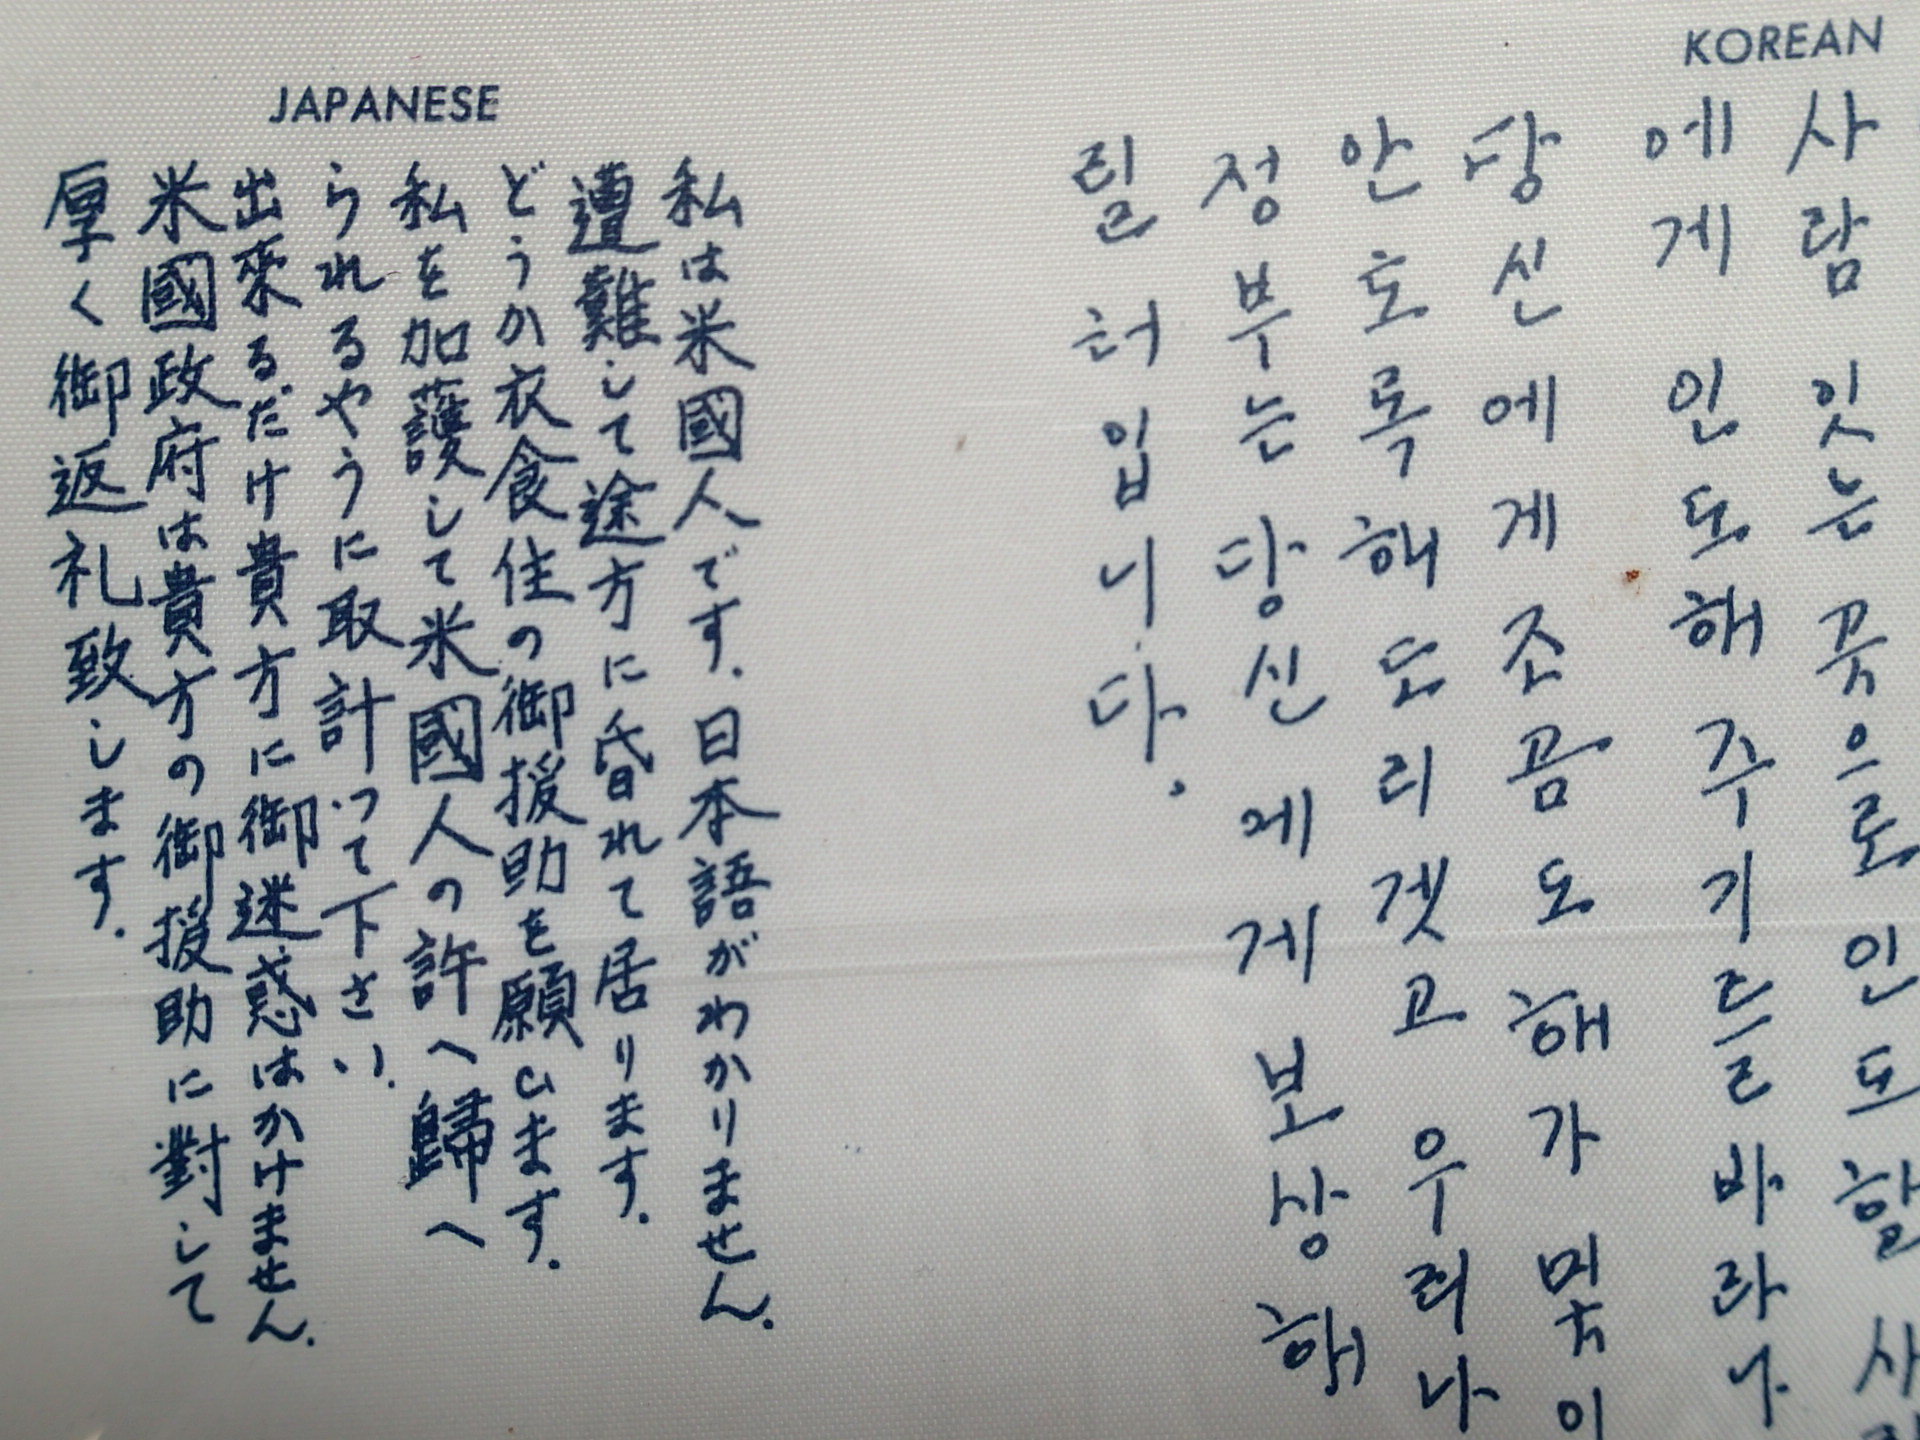 JAPANESE
私は米國人です.日本語がわかりません.
遭難して途方に昏れて居ります.
どうか衣食住の御援助を願ひます.
私を加護して米國人の許へ歸へ
られるやうに取計って下さい.
出來るだけ貴方に御迷惑はかけません.
米國政府は貴方の御援助に對して
厚く御返礼致します.
KOREAN
사람 잇는 곳으로 인도할 사람
에게 인도해 주기를 바라나
당신에게 조곰도 해가
안토록 해 드리겟고 우리나
정부는 당신에게 보상해
릴 터입니다.